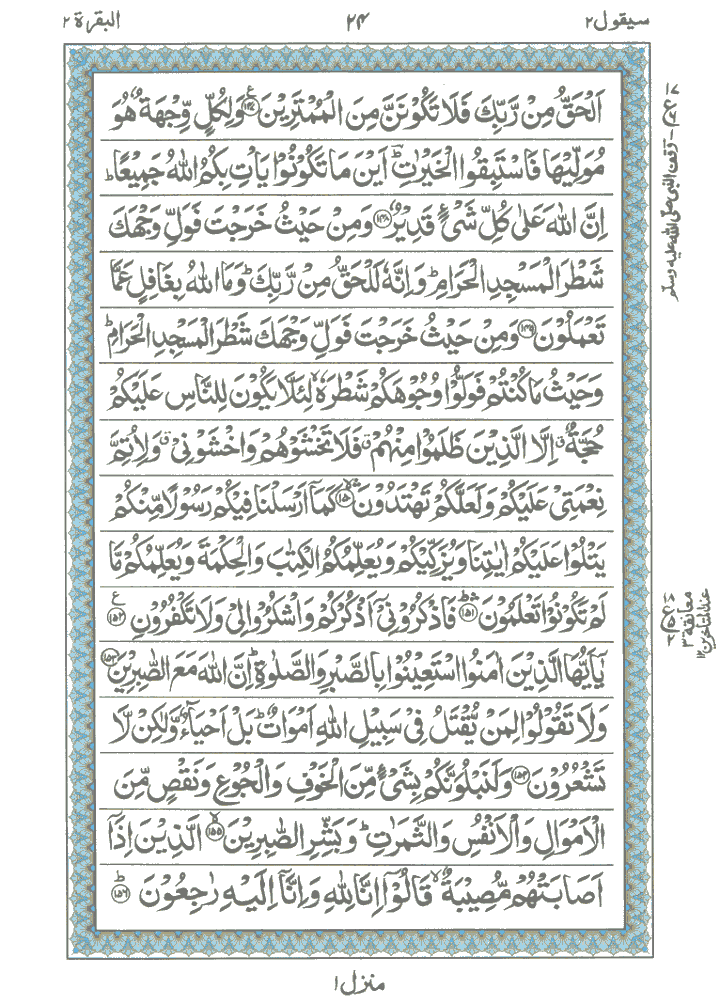 سيقول ٢ ٢٤ البقرة ٢
اَلْحَقُّ مِنْ رَّبِّكَ فَلَا تَكُوْنَنَّ مِنَ الْمُمْتَرِيْنَ ﴿١٤٧﴾ ع وَلِكُلٍّ وِّجْهَةٌ هُوَ
مُوَلِّيْهَا فَاسْتَبِقُوا الْخَيْرٰتِ ؕ اَيْنَ مَا تَكُوْنُوْا يَاْتِ بِكُمُ اللّٰهُ جَمِيْعًا ؕ
اِنَّ اللّٰهَ عَلٰى كُلِّ شَىْءٍ قَدِيْرٌ ﴿١٤٨﴾ وَمِنْ حَيْثُ خَرَجْتَ فَوَلِّ وَجْهَكَ
شَطْرَ الْمَسْجِدِ الْحَرَامِ ؕ وَاِنَّهٗ لَلْحَقُّ مِنْ رَّبِّكَ ؕ وَمَا اللّٰهُ بِغَافِلٍ عَمَّا
تَعْمَلُوْنَ ﴿١٤٩﴾ وَمِنْ حَيْثُ خَرَجْتَ فَوَلِّ وَجْهَكَ شَطْرَ الْمَسْجِدِ الْحَرَامِ ؕ
وَحَيْثُ مَا كُنْتُمْ فَوَلُّوْا وُجُوْهَكُمْ شَطْرَهٗ ۙ لِئَلَّا يَكُوْنَ لِلنَّاسِ عَلَيْكُمْ
حُجَّةٌ ۗ اِلَّا الَّذِيْنَ ظَلَمُوْا مِنْهُمْ ۗ فَلَا تَخْشَوْهُمْ وَاخْشَوْنِىْ ۗ وَلِاُتِمَّ
نِعْمَتِىْ عَلَيْكُمْ وَلَعَلَّكُمْ تَهْتَدُوْنَ ﴿١٥٠﴾ ۙ كَمَآ اَرْسَلْنَا فِيْكُمْ رَسُوْلًا مِّنْكُمْ
يَتْلُوْا عَلَيْكُمْ اٰيٰتِنَا وَيُزَكِّيْكُمْ وَيُعَلِّمُكُمُ الْكِتٰبَ وَالْحِكْمَةَ وَيُعَلِّمُكُمْ مَّا
لَمْ تَكُوْنُوْا تَعْلَمُوْنَ ﴿١٥١﴾ ؕ فَاذْكُرُوْنِىْٓ اَذْكُرْكُمْ وَاشْكُرُوْا لِىْ وَلَا تَكْفُرُوْنِ ﴿١٥٢﴾ ع
يٰٓاَيُّهَا الَّذِيْنَ اٰمَنُوا اسْتَعِيْنُوْا بِالصَّبْرِ وَالصَّلٰوةِ ؕ اِنَّ اللّٰهَ مَعَ الصّٰبِرِيْنَ ﴿١٥٣﴾
وَلَا تَقُوْلُوْا لِمَنْ يُّقْتَلُ فِىْ سَبِيْلِ اللّٰهِ اَمْوَاتٌ ؕ بَلْ اَحْيَآءٌ وَّلٰكِنْ لَّا
تَشْعُرُوْنَ ﴿١٥٤﴾ وَلَنَبْلُوَنَّكُمْ بِشَىْءٍ مِّنَ الْخَوْفِ وَالْجُوْعِ وَنَقْصٍ مِّنَ
الْاَمْوَالِ وَالْاَنْفُسِ وَالثَّمَرٰتِ ؕ وَبَشِّرِ الصّٰبِرِيْنَ ﴿١٥٥﴾ ۙ الَّذِيْنَ اِذَآ
اَصَابَتْهُمْ مُّصِيْبَةٌ ۙ قَالُوْٓا اِنَّا لِلّٰهِ وَاِنَّآ اِلَيْهِ رٰجِعُوْنَ ﴿١٥٦﴾ ؕ
وقف النبي صلى الله عليه وسلم
معانقة ٣
عند المتاخرين ١٢
منزل ١